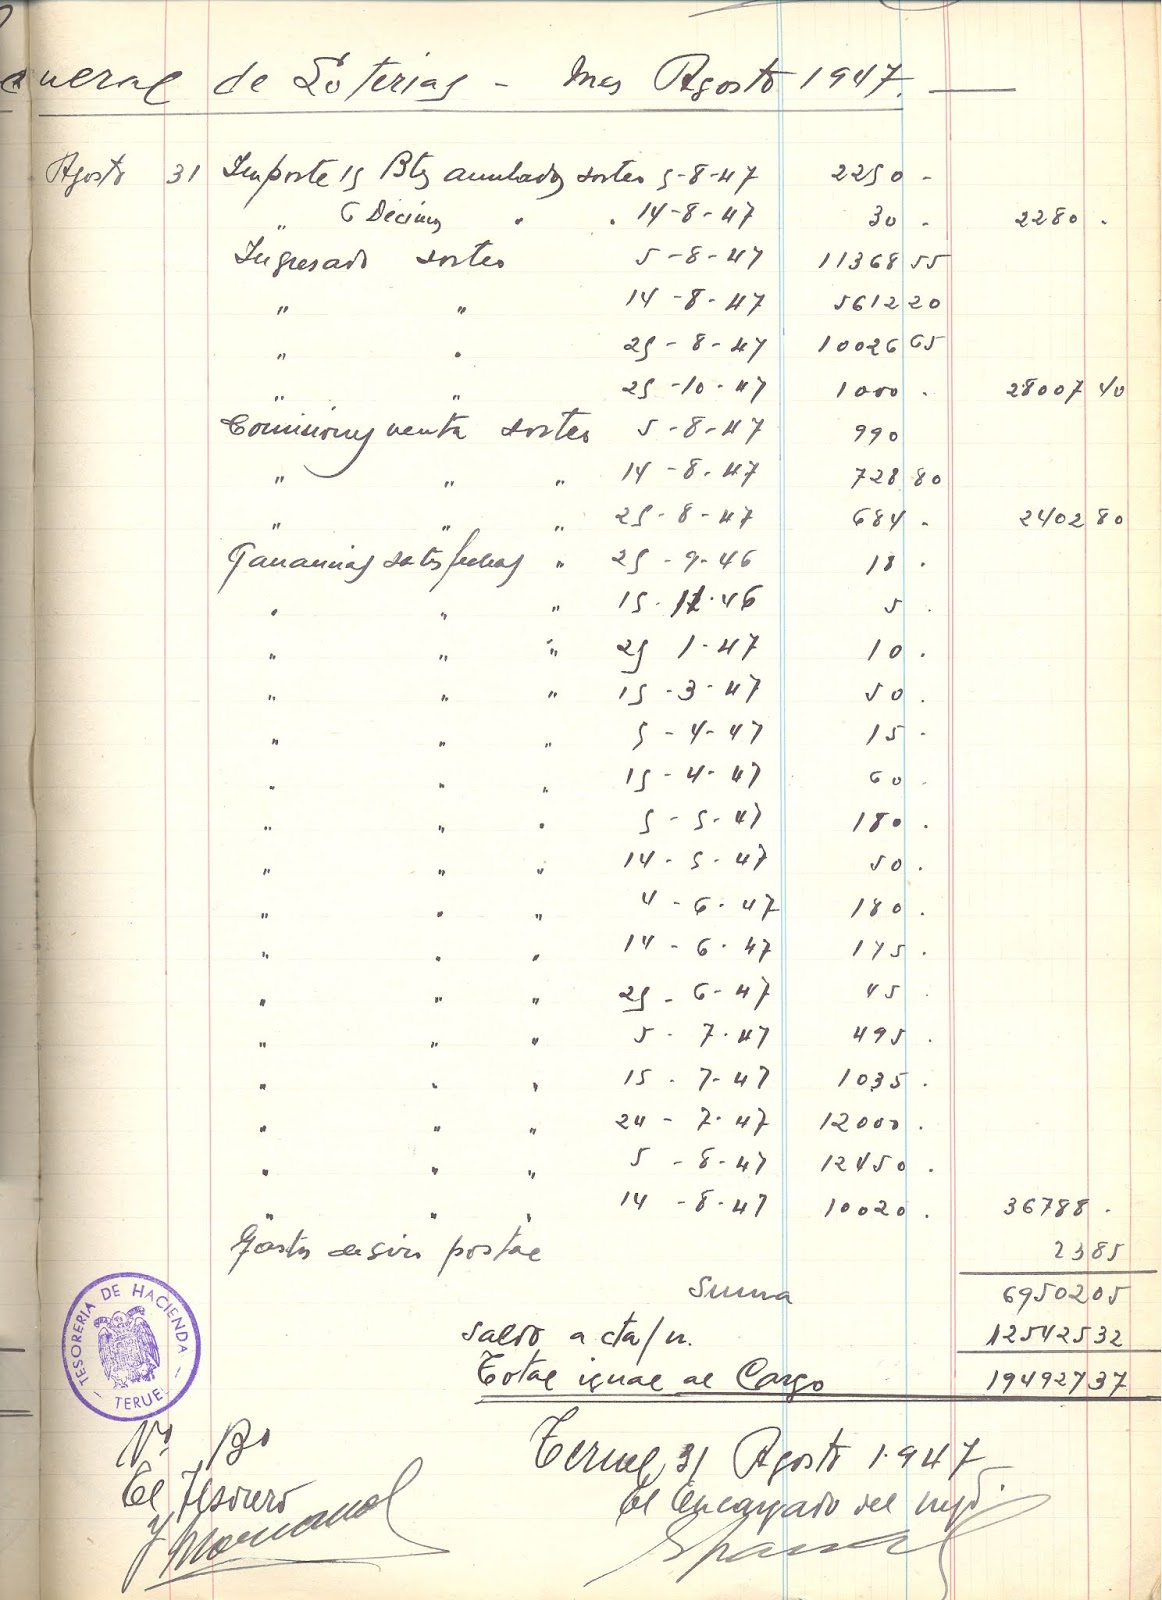 neral de Loterias - Mes Agosto 1947. —
Agosto 31 Importe 15 Btes anulados sorteo 5-8-47 2250 -
" 6 Decimos " . 14-8-47 30 . 2280 .
Ingresado sorteo 5-8-47 11368 55
" " 14-8-47 5612 20
" " 25-8-47 10026 65
" " 25-10-47 1000 . 28007 40
Comisiones venta sorteo 5-8-47 990
" " " 14-8-47 728 80
" " " 25-8-47 684 - 2402 80
Ganancias satisfechas " 25-9-46 18 .
" " " 15-11-46 5 .
" " " 25 1-47 10 .
" " " 15-3-47 50 .
" " " 5-4-47 15 -
" " " 15-4-47 60 .
" " " 5-5-47 180 .
" " " 14-5-47 50 .
" " " 4-6-47 180 .
" " " 14-6-47 175 .
" " " 25-6-47 45 .
" " " 5-7-47 495 .
" " " 15-7-47 1035 .
" " " 24-7-47 12000 .
" " " 5-8-47 12450 .
" " " 14-8-47 10020 . 36788 .
Gastos de giro postal 23 85
Suma 69502 05
Saldo a cta/n. 125425 32
Total igual al Cargo 194927 37
TESORERIA DE HACIENDA
- TERUEL -
Vº Bº
El Tesorero
Teruel, 31 Agosto 1.947
El Encargado del negdº.